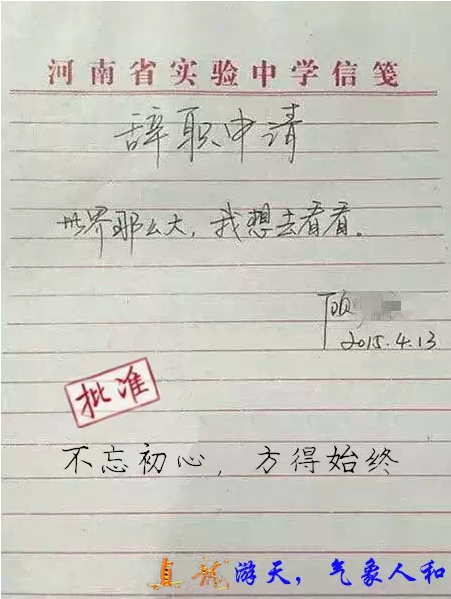 河南省实验中学信笺
辞职申请
世界那么大，我想去看看。
顾
2015.4.13
批准
不忘初心，方得始终
直龙游天，气象人和